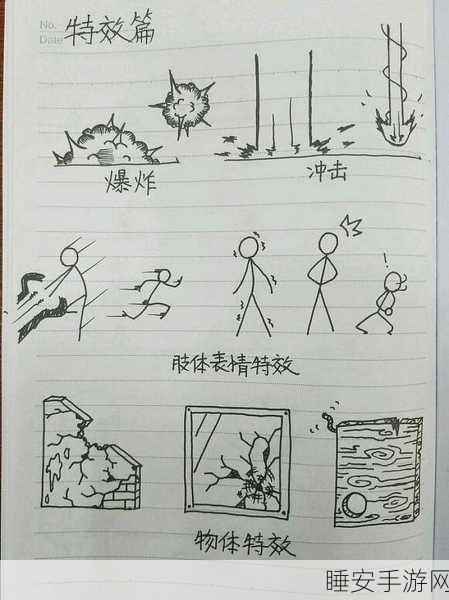 No.
Date
特效篇
爆炸
冲击
!
肢体表情特效
物体特效
睡安手游网